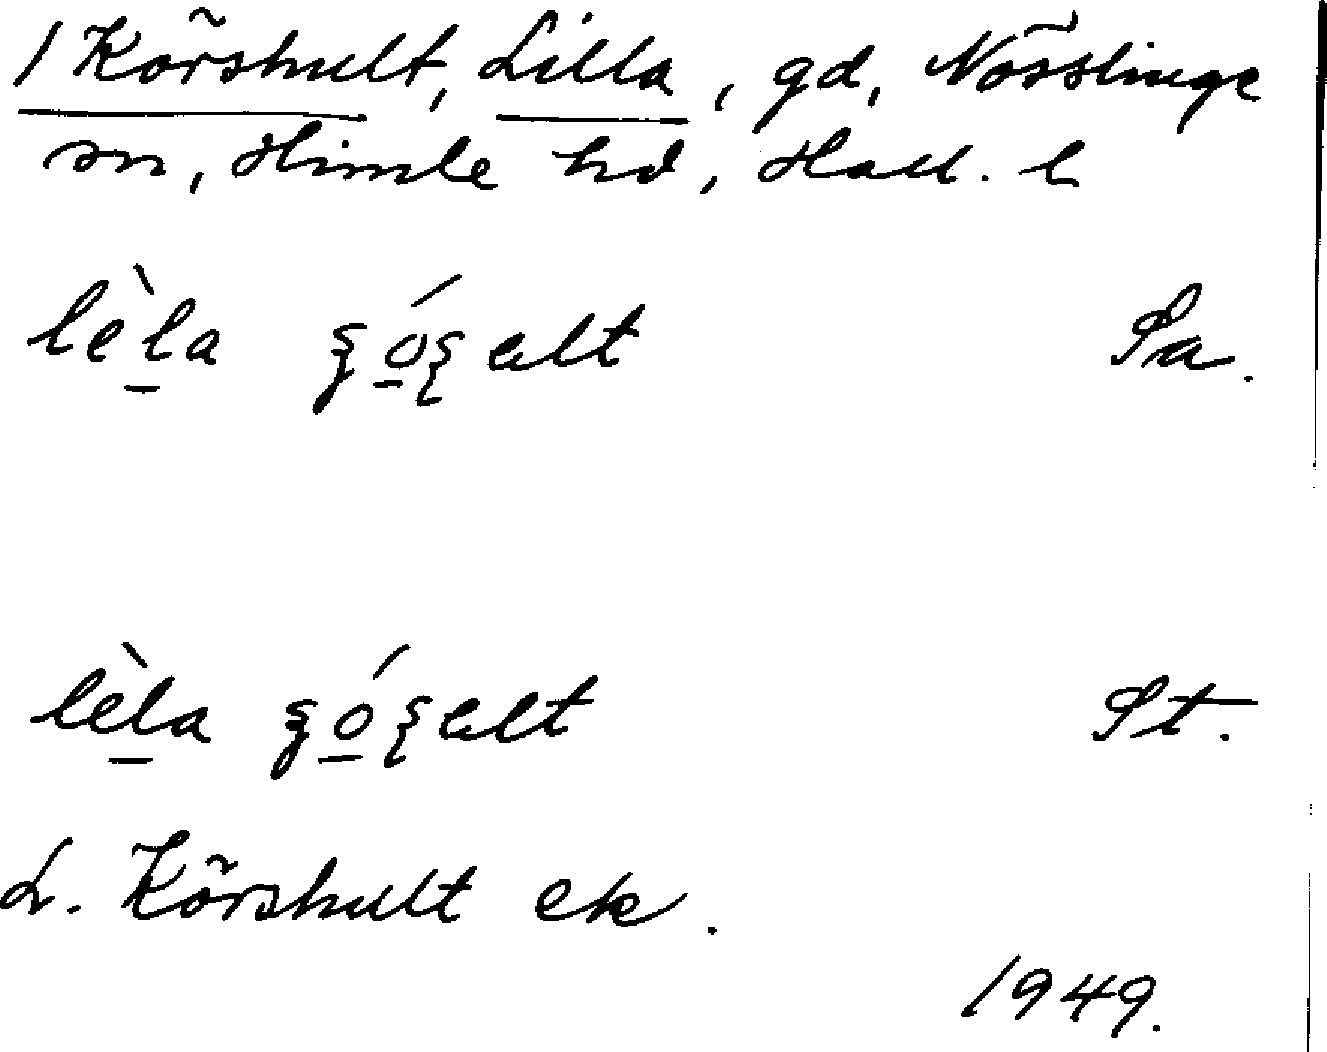 1 Körshult, Lilla, gd, Nösslinge
sn, Himle hd, Hall. l
lèla
Sa.
lèla
St.
L. Körshult ek.
1949.